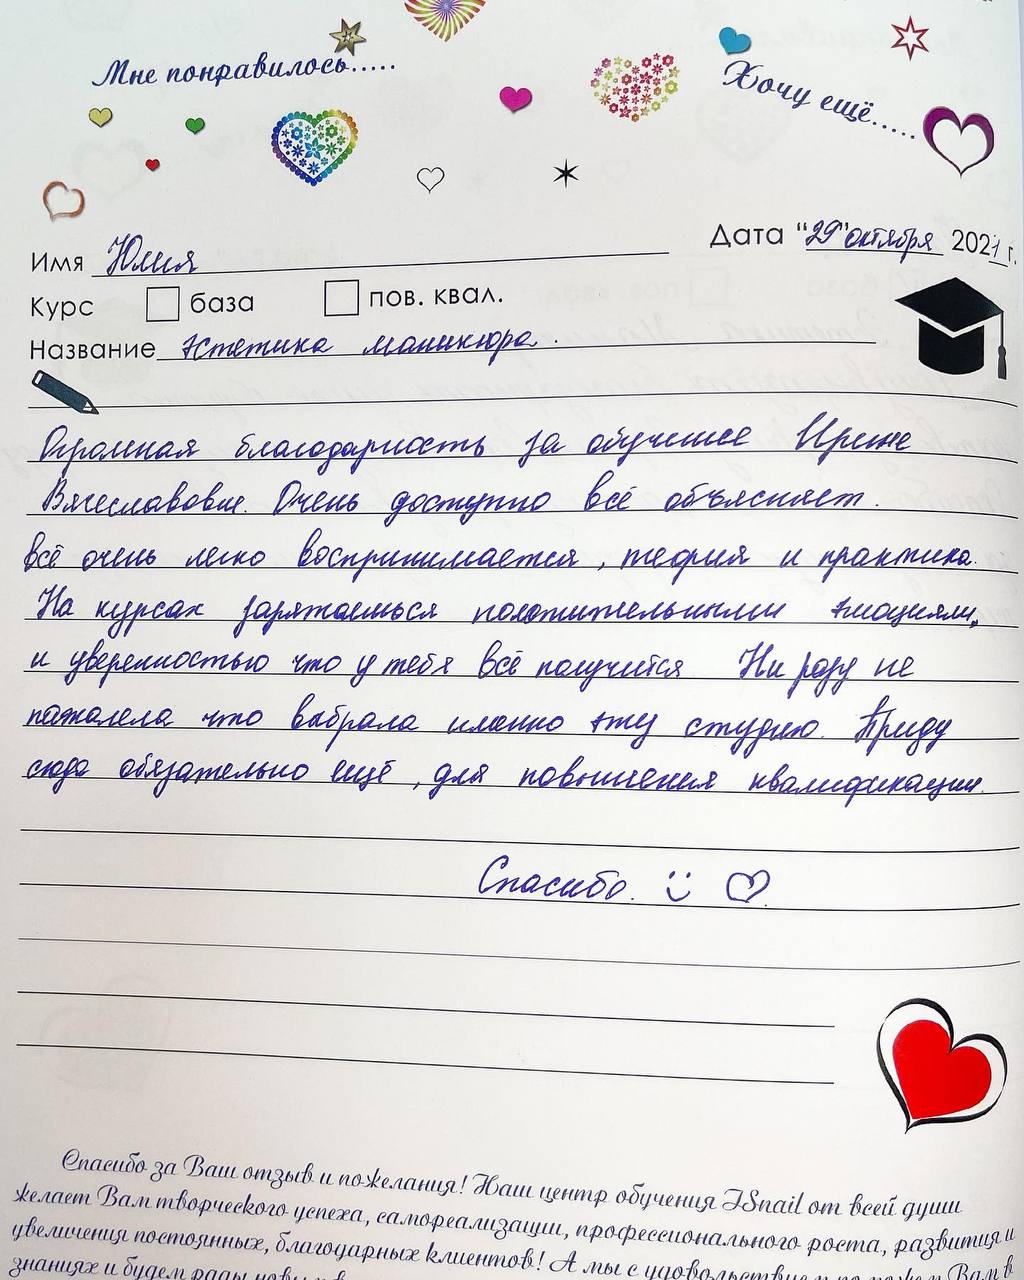 Мне понравилось.....
Хочу ещё.....
Дата "29" октября 2021 г.
Имя Юлия
Курс база пов. квал.
Название эстетика маникюра.
Огромная благодарность за обучение Ирине
Вячеславовне. Очень доступно всё объясняет.
всё очень легко воспринимается, теория и практика.
На курсах заряжаешься положительными эмоциями,
и уверенностью что у тебя всё получится Ни разу не
пажалела что выбрала именно эту студию. Приду
сюда обязательно ещё, для повышения квалификации.
Спасибо.
Спасибо за Ваш отзыв и пожелания! Наш центр обучения ISnail от всей души
желает Вам творческого успеха, самореализации, профессионального роста, развития и
увеличения постоянных, благодарных клиентов! А мы с удовольствием поможем Вам в
знаниях и будем рады